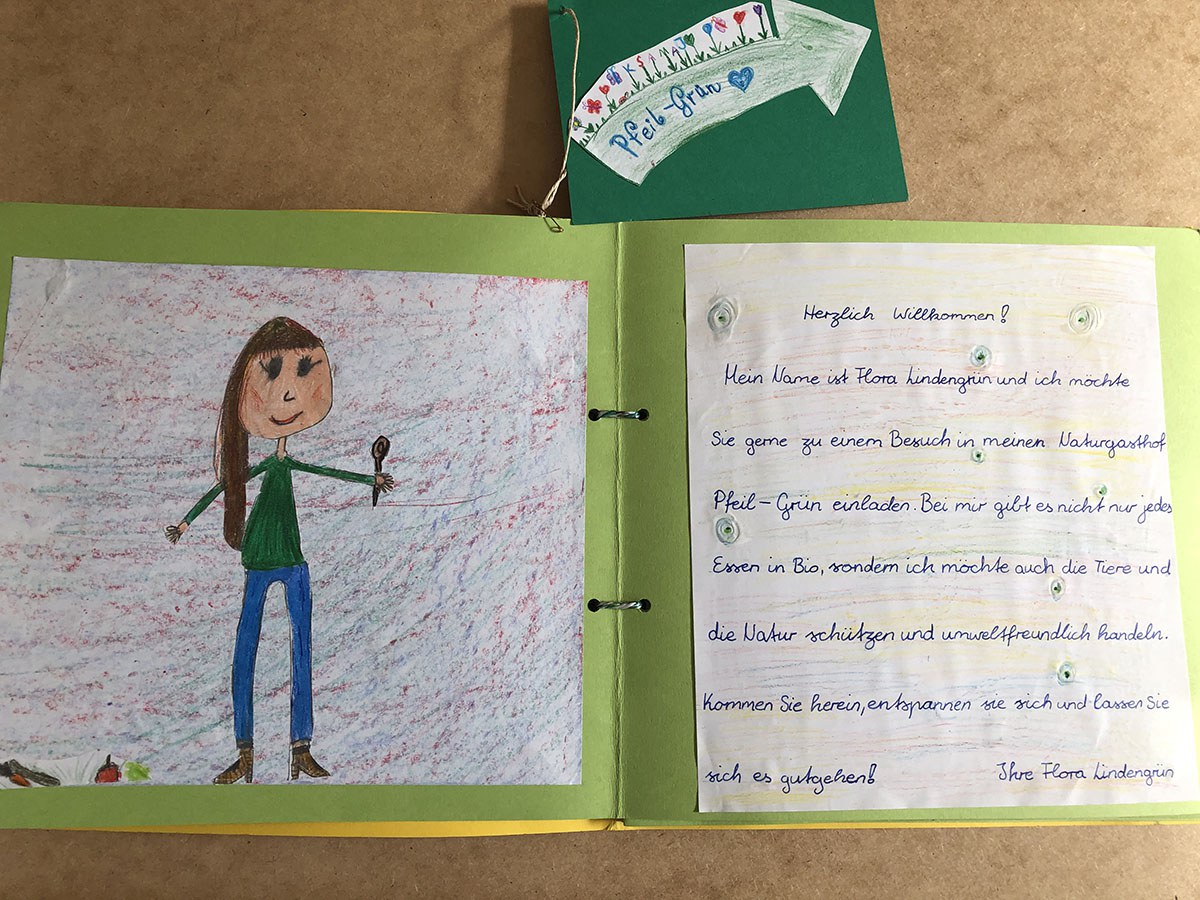 Pfeil-Grün
Herzlich Willkommen!
Mein Name ist Flora Lindengrün und ich möchte
Sie gerne zu einem Besuch in meinen Naturgasthof
Pfeil-Grün einladen. Bei mir gibt es nicht nur jedes
Essen in Bio, sondern ich möchte auch die Tiere und
die Natur schützen und umweltfreundlich handeln.
Kommen Sie herein, entspannen sie sich und lassen Sie
sich es gutgehen!
Ihre Flora Lindengrün